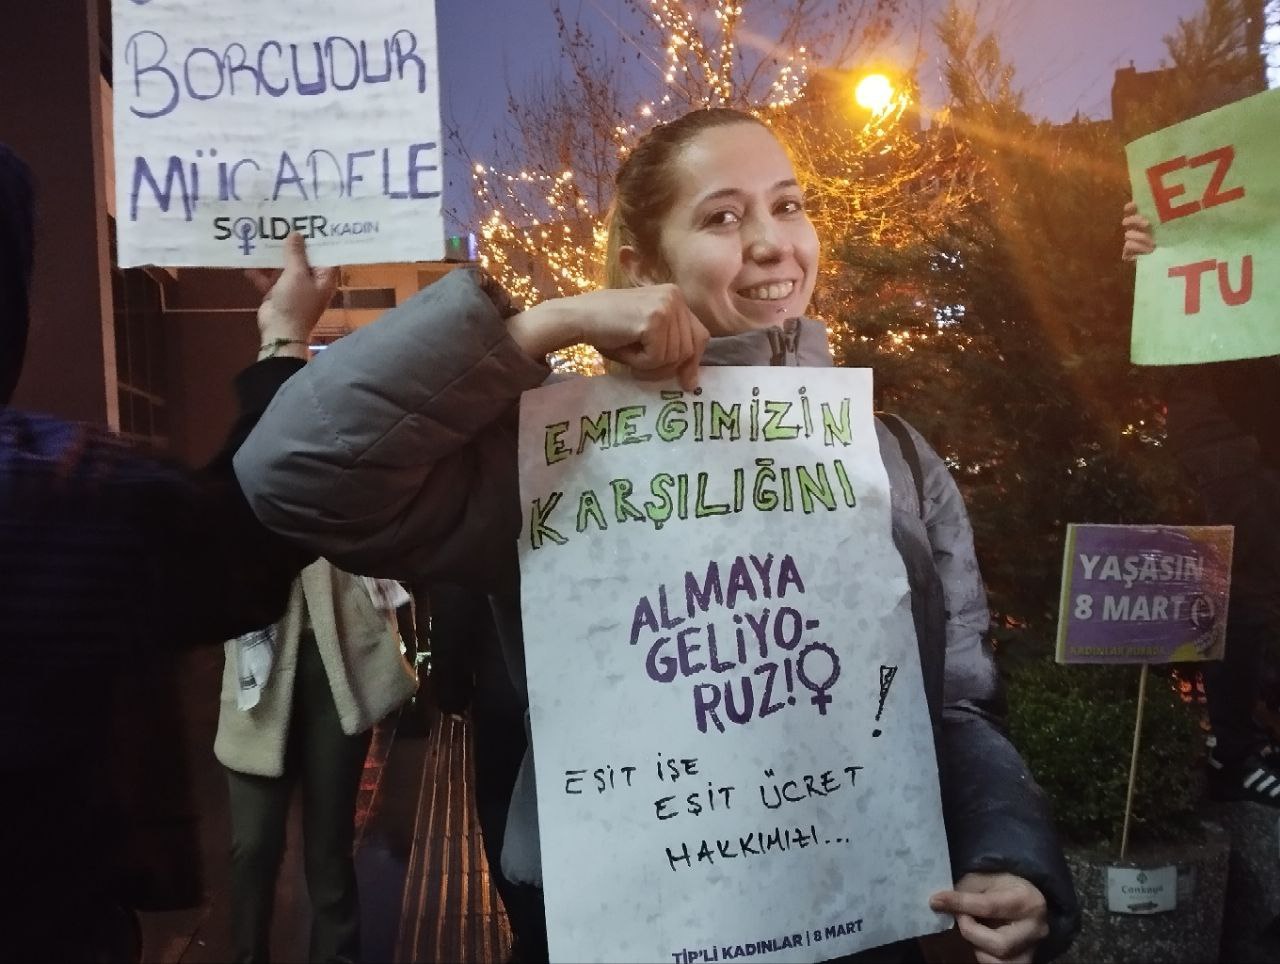 BORCUDUR
MÜCADELE
SOLDER KADIN
EZ
TU
EMEĞİMİZİN
KARŞILIĞINI
ALMAYA
GELİYO-
RUZ!
!
EŞİT İŞE
EŞİT ÜCRET
HAKKIMIZI...
TİP'Lİ KADINLAR | 8 MART
YAŞASIN
8 MART
KADINLAR BURADA
Çankaya